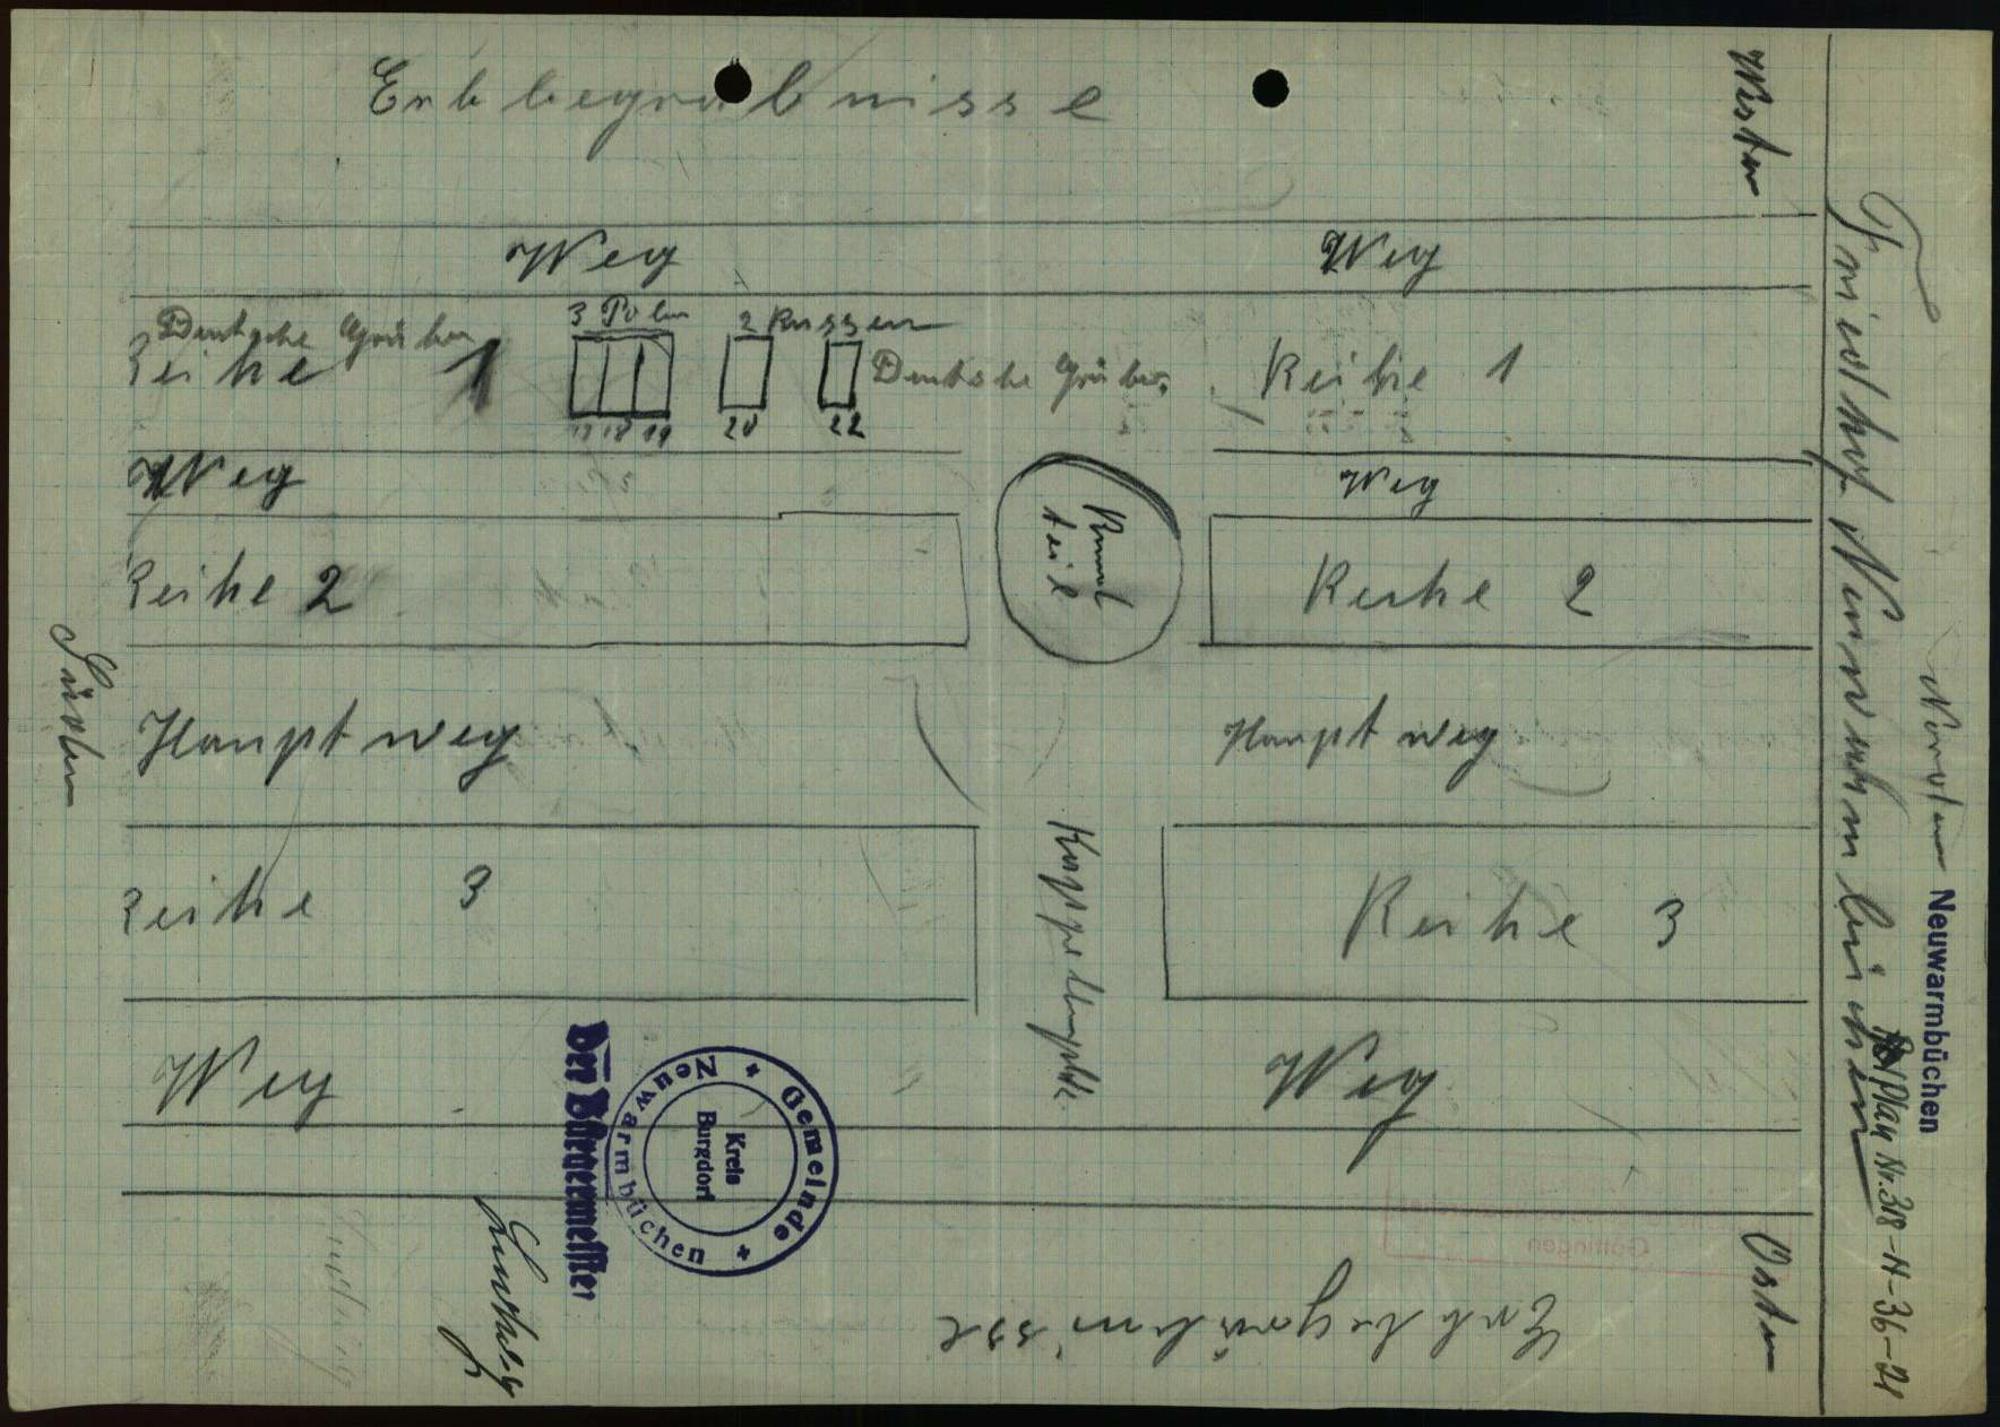 Erbbegräbnisse
Westen
Weg
Weg
Deutsche Gräber
3 Polen
2 Russen
Reihe 1
Deutsche Gräber
Reihe 1
17 18 19
20
22
Weg
Weg
Rund
teil
Reihe 2
Reihe 2
Süden
Hauptweg
Hauptweg
Reihe 3
Reihe 3
Weg
Weg
Der Bürgermeister
Gemeinde
Neuwarmbüchen
Kreis
Burgdorf
Erbbegräbnisse
Osten
Friedhof Neuwarmbüchen
Norden
Neuwarmbüchen
Plan Nr. 318-H-36-21
Göttingen